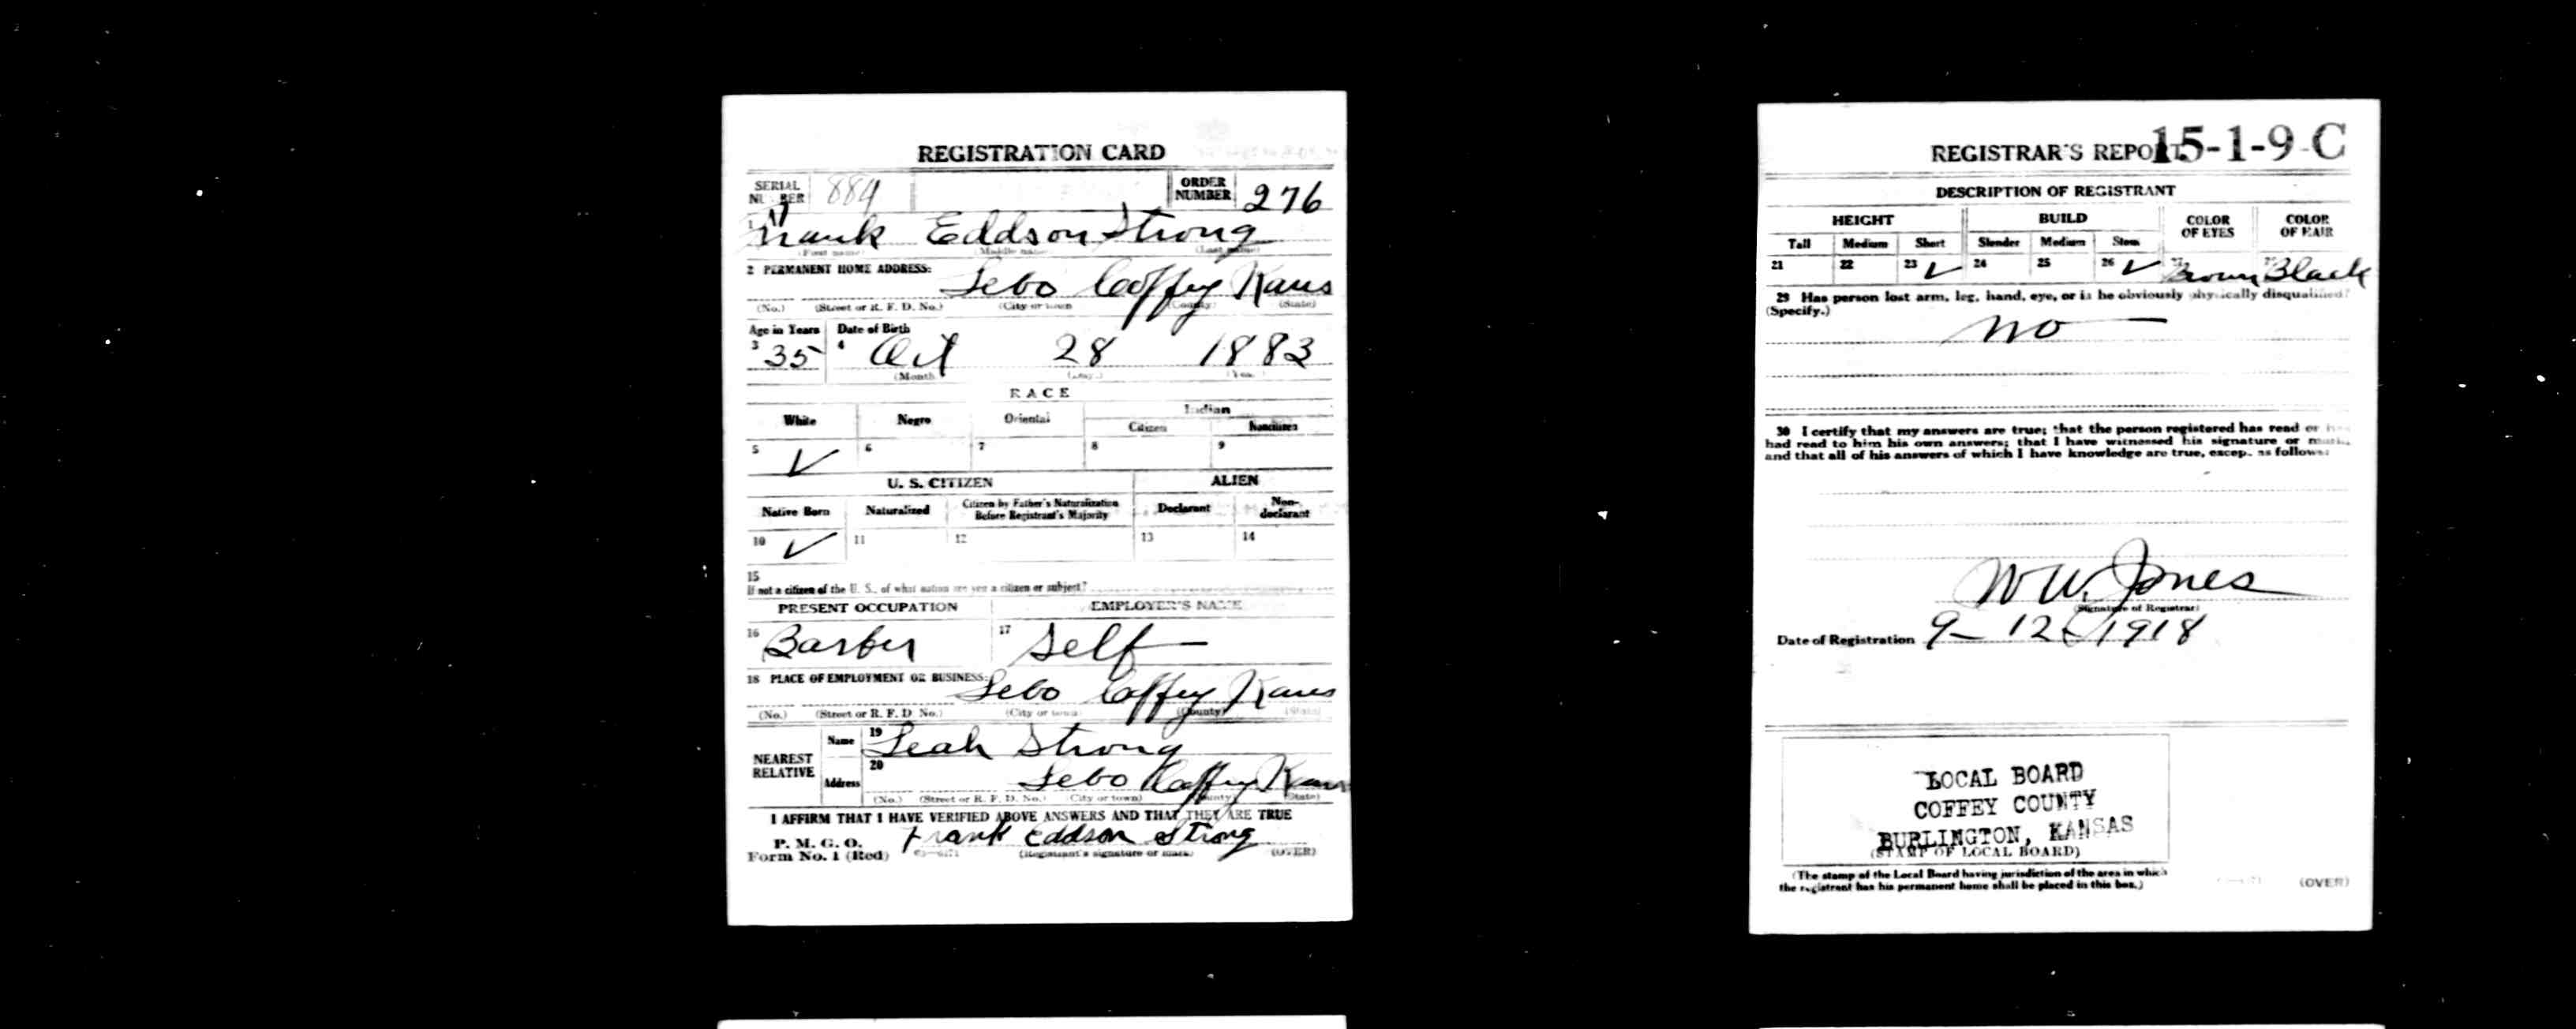 REGISTRATION CARD
SERIAL NUMBER 884 ORDER NUMBER 276
1 Frank Eddson Strong
(First name) (Middle name) (Last name)
2 PERMANENT HOME ADDRESS:
Lebo Coffey Kans
(No.) (Street or R. F. D. No.) (City or town) (County) (State)
Age in Years Date of Birth
3 35 4 Oct 28 1883
(Month) (Day) (Year)
RACE
White Negro Oriental Indian
Citizen Noncitizen
5 ✓ 6 7 8 9
U. S. CITIZEN ALIEN
Native Born Naturalized Citizen by Father's Naturalization Before Registrant's Majority Declarant Non-declarant
10 ✓ 11 12 13 14
15
If not a citizen of the U. S., of what nation are you a citizen or subject?
PRESENT OCCUPATION EMPLOYER'S NAME
16 Barber 17 Self
18 PLACE OF EMPLOYMENT OR BUSINESS:
Lebo Coffey Kans
(No.) (Street or R. F. D. No.) (City or town) (County) (State)
NEAREST RELATIVE Name 19 Leah Strong
Address 20 Lebo Coffey Kans
(No.) (Street or R. F. D. No.) (City or town) (County) (State)
I AFFIRM THAT I HAVE VERIFIED ABOVE ANSWERS AND THAT THEY ARE TRUE
P. M. G. O.
Form No. 1 (Red) Frank Eddson Strong
(Registrant's signature or mark) (OVER)
REGISTRAR'S REPORT 15-1-9 C
DESCRIPTION OF REGISTRANT
HEIGHT BUILD COLOR OF EYES COLOR OF HAIR
Tall Medium Short Slender Medium Stout
21 22 23 ✓ 24 25 26 ✓ 27 Brown Black
29 Has person lost arm, leg, hand, eye, or is he obviously physically disqualified?
(Specify.)
no
30 I certify that my answers are true; that the person registered has read or has
had read to him his own answers; that I have witnessed his signature or mark,
and that all of his answers of which I have knowledge are true, except as follows:
W W. Jones
(Signature of Registrar)
Date of Registration 9-12-1918
LOCAL BOARD
COFFEY COUNTY
BURLINGTON, KANSAS
(STAMP OF LOCAL BOARD)
(The stamp of the Local Board having jurisdiction of the area in which
the registrant has his permanent home shall be placed in this box.)
(OVER)